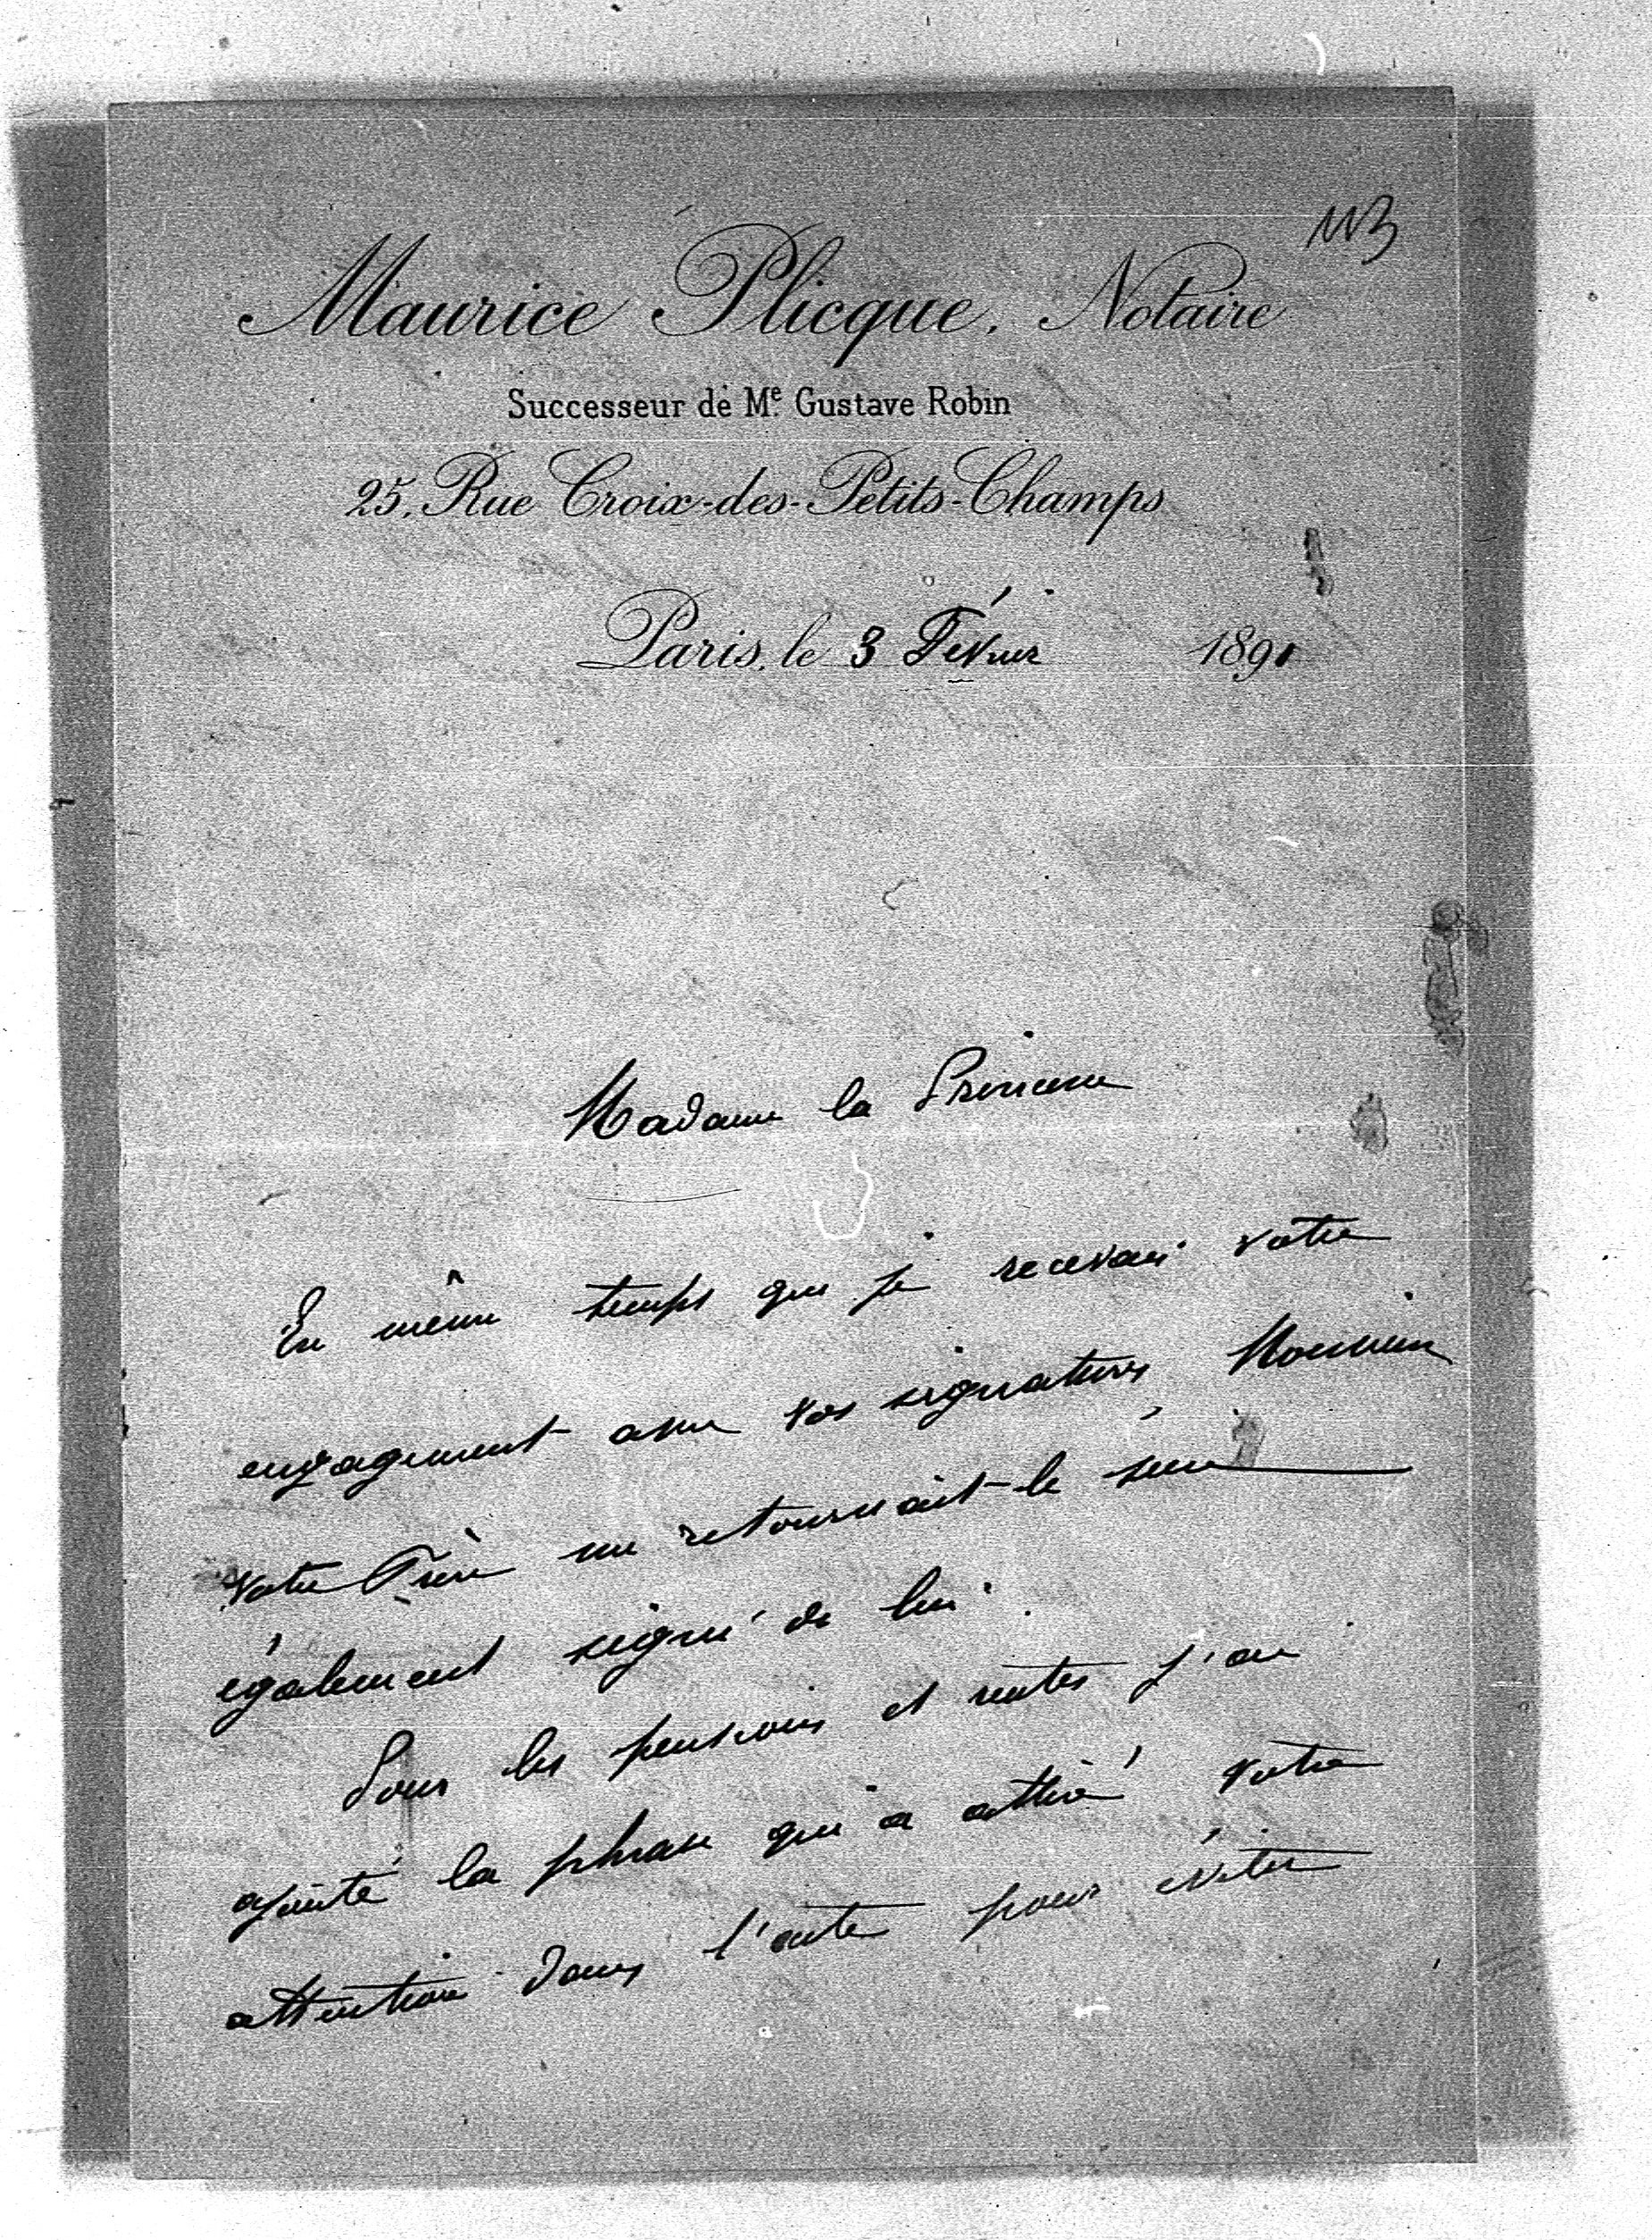 113
Maurice Plicque, Notaire
Successeur de Me Gustave Robin
25, Rue Croix-des-Petits-Champs
Paris, le 3 Février 1891
Madame la Princesse
En même temps que je recevais votre
engagement avec vos signatures Monsieur
votre Frère me retournait le sien
également signé de lui.
Pour les pensions et rentes j'ai
ajouté la phrase qui a attiré votre
attention dans l'acte pour éviter